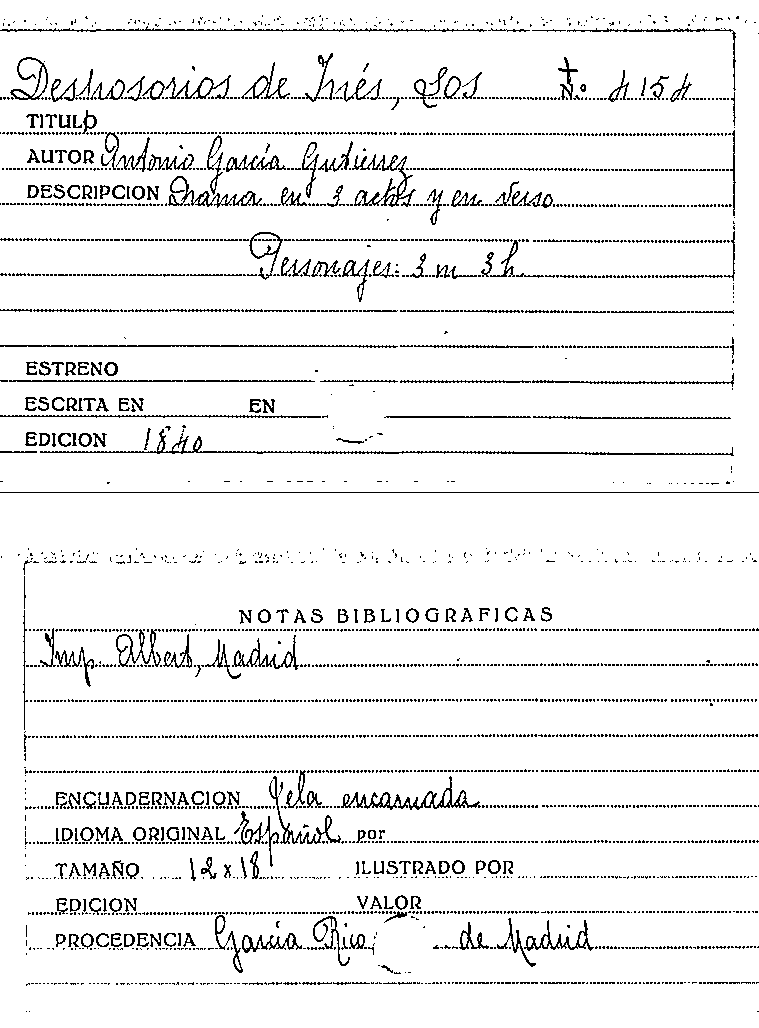 Desposorios de Inés, Los Nº 4154
TITULO
AUTOR Antonio García Gutiérrez
DESCRIPCION Drama en 3 actos y en verso
Personajes: 3 m 3 h.
ESTRENO
ESCRITA EN EN
EDICION 1840
NOTAS BIBLIOGRAFICAS
Imp. Albert, Madrid
ENCUADERNACION Tela encarnada
IDIOMA ORIGINAL Español por
TAMAÑO 12 x 18 ILUSTRADO POR
EDICION VALOR
PROCEDENCIA García Rico, de Madrid